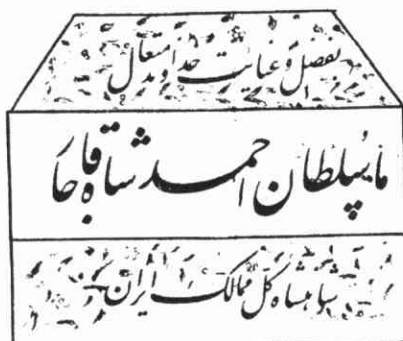 بفضل و عنایت خداوند متعال
ما سلطان احمد شاه قاجار
شاهنشاه کل ممالک ایران